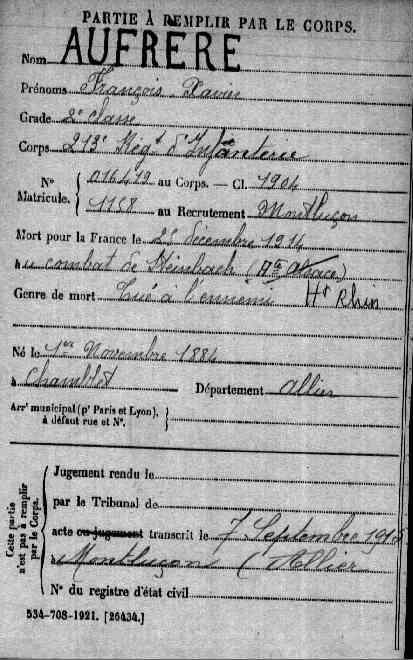 PARTIE À REMPLIR PAR LE CORPS.
Nom AUFRÈRE
Prénoms François Xavier
Grade 2e classe
Corps 213e Régt d'Infanterie
N° 016419 au Corps. — Cl. 1904
Matricule. 1158 au Recrutement Montluçon
Mort pour la France le décembre 1914
au combat de Steinbach (Hte Alsace)
Genre de mort Tué à l'ennemi Ht Rhin
Né le 1er Novembre 1884
à Chamblet Département Allier
Arrt municipal (pr Paris et Lyon), à défaut rue et N°.
Cette partie n'est pas à remplir par le Corps.
Jugement rendu le
par le Tribunal de
acte ou jugement transcrit le 7 Septembre
à Montluçon (Allier
N° du registre d'état civil
534-708-1921. [26434.]